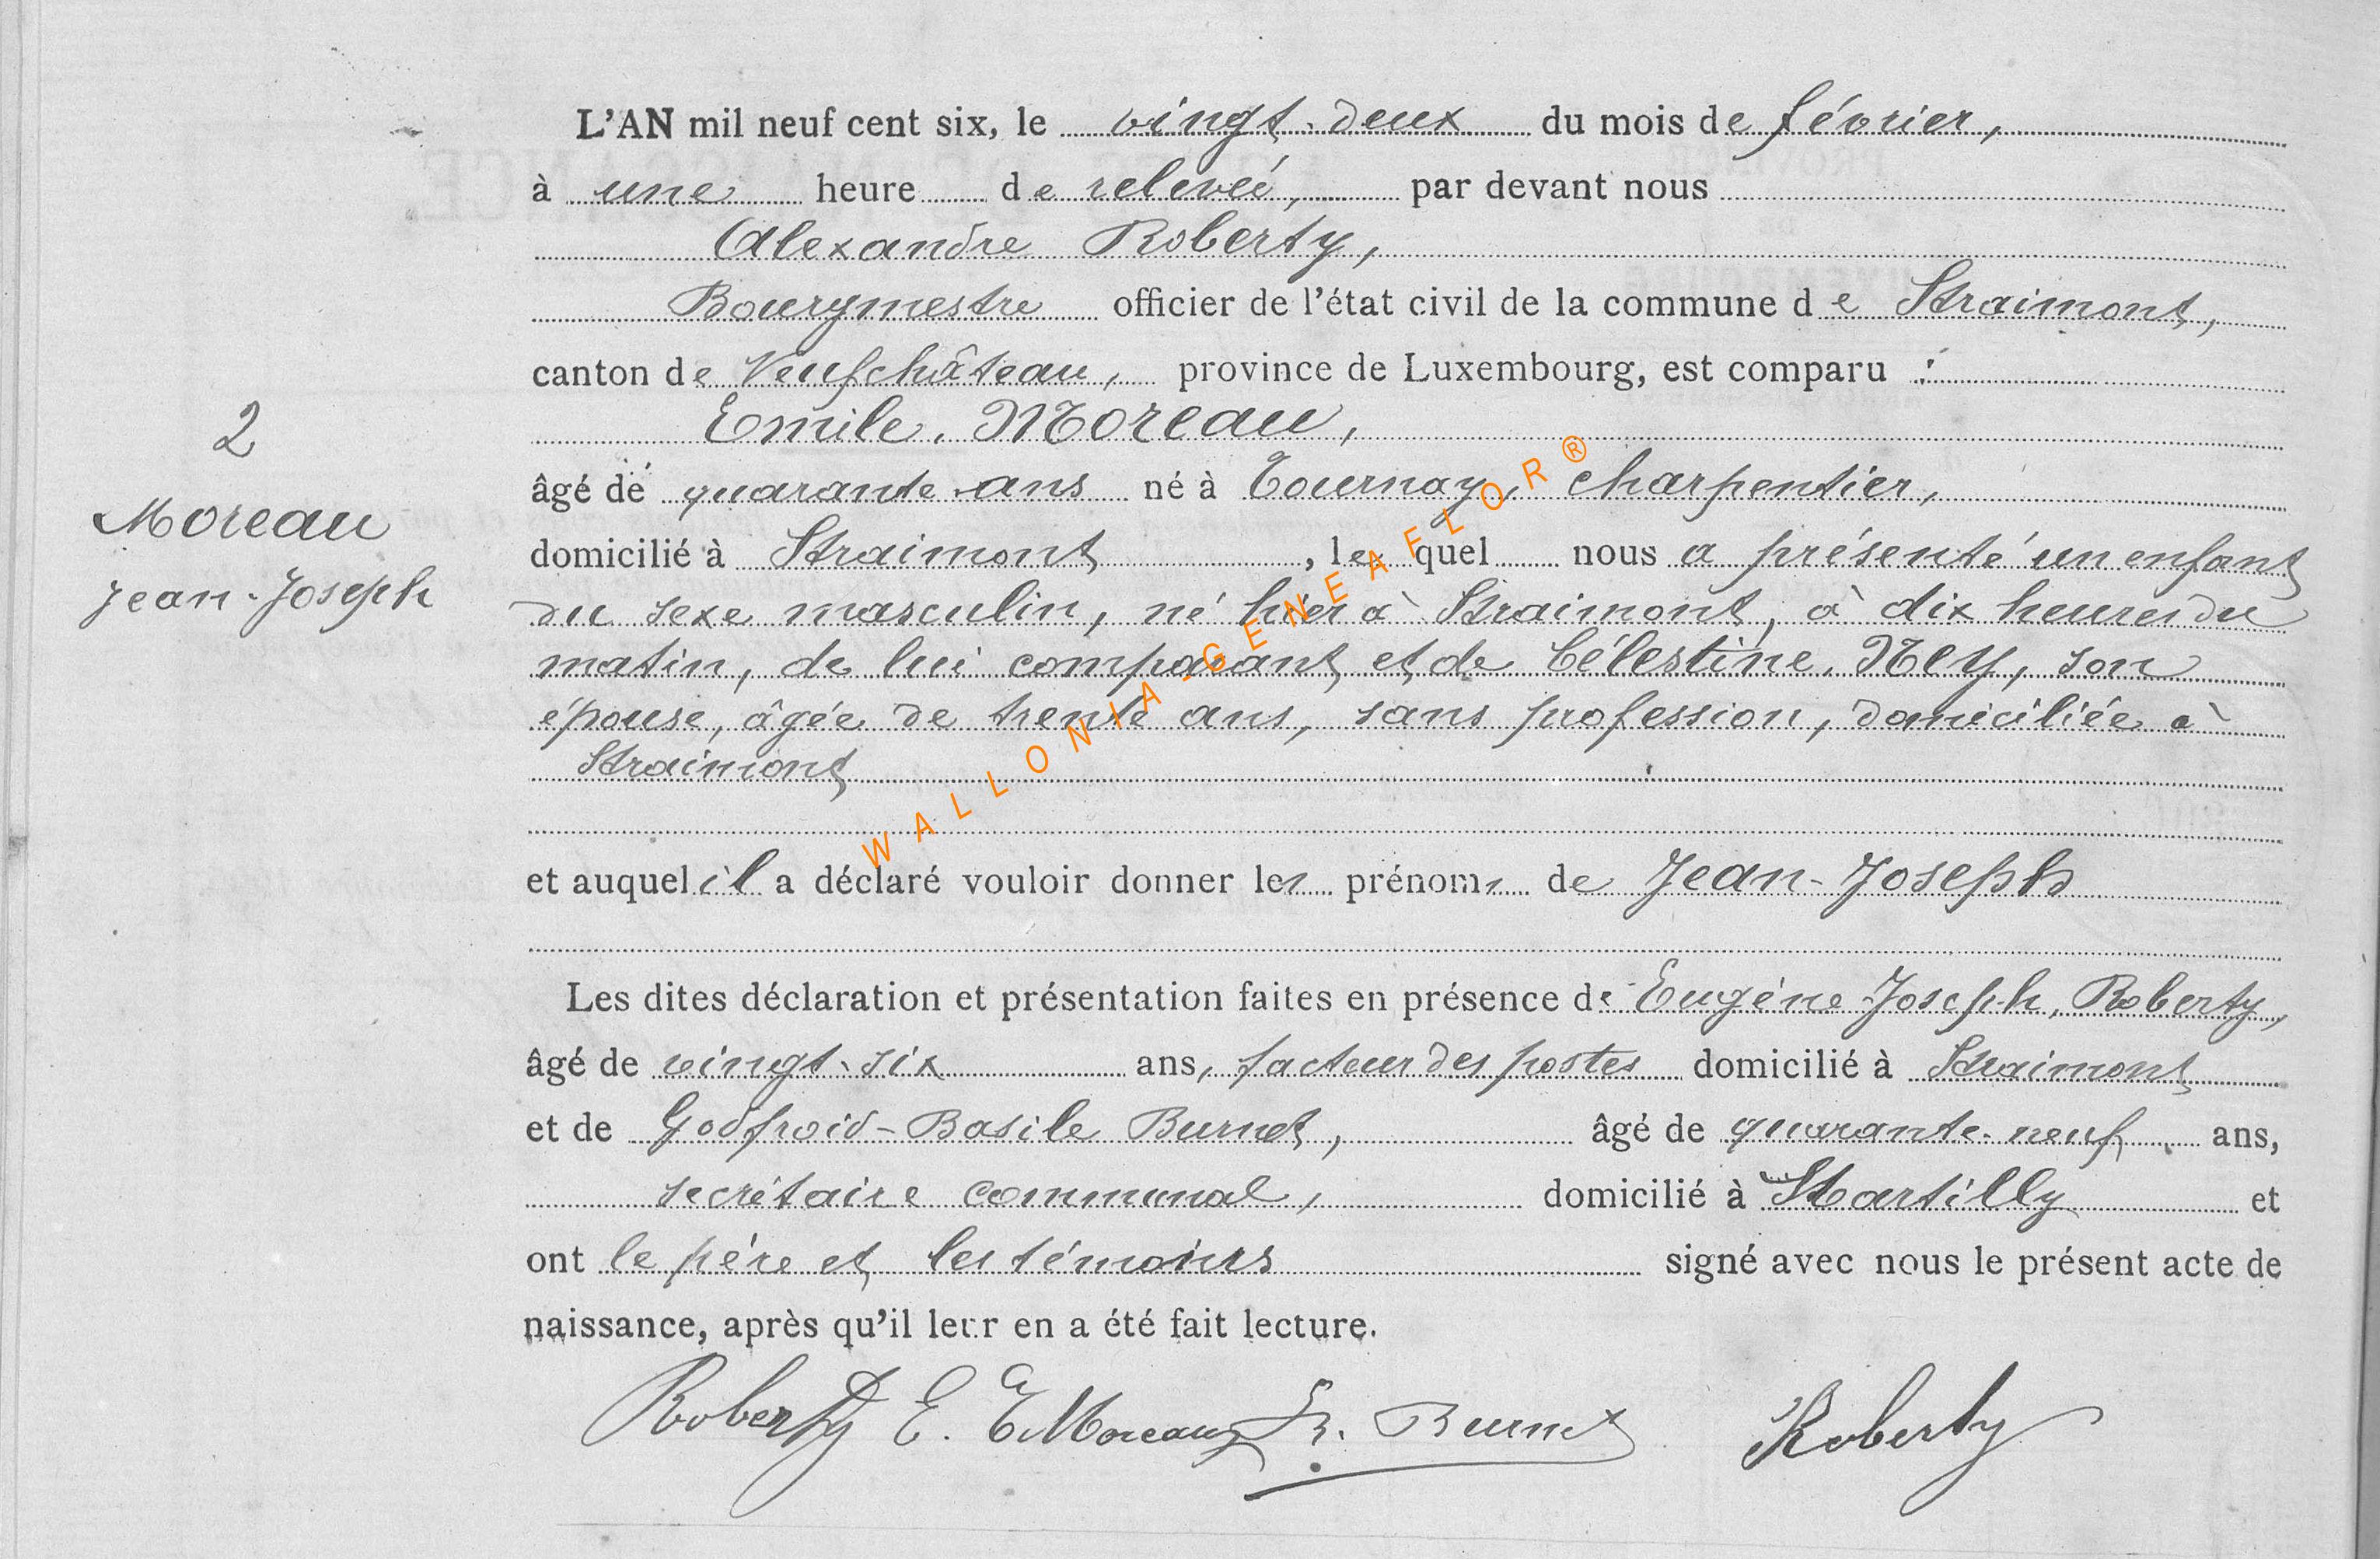 L'AN mil neuf cent six, le vingt-deux du mois de février,
à une heure de relevée, par devant nous
Alexandre Roberty,
Bourgmestre officier de l'état civil de la commune de Straimont,
canton de Neufchâteau, province de Luxembourg, est comparu :
Emile, Moreau,
2
âgé de quarante ans né à Tournay, charpentier,
Moreau
domicilié à Straimont, lequel nous a présenté un enfant
Jean-Joseph
du sexe masculin, né hier à Straimont, à dix heures du
matin, de lui comparant et de Célestine, Ney, son
épouse, âgée de trente ans, sans profession, domiciliée à
Straimont
et auquel il a déclaré vouloir donner les prénoms de Jean-Joseph
Les dites déclaration et présentation faites en présence de Eugène-Joseph, Roberty,
âgé de vingt-six ans, facteur des postes domicilié à Straimont
et de Godfroid-Basile Burnet, âgé de quarante-neuf ans,
secrétaire communal, domicilié à Martilly et
ont le père et les témoins signé avec nous le présent acte de
naissance, après qu'il leur en a été fait lecture.
Roberty E. E Moreau B. Burnet Roberty
WALLONIA-GENEAFLOR®